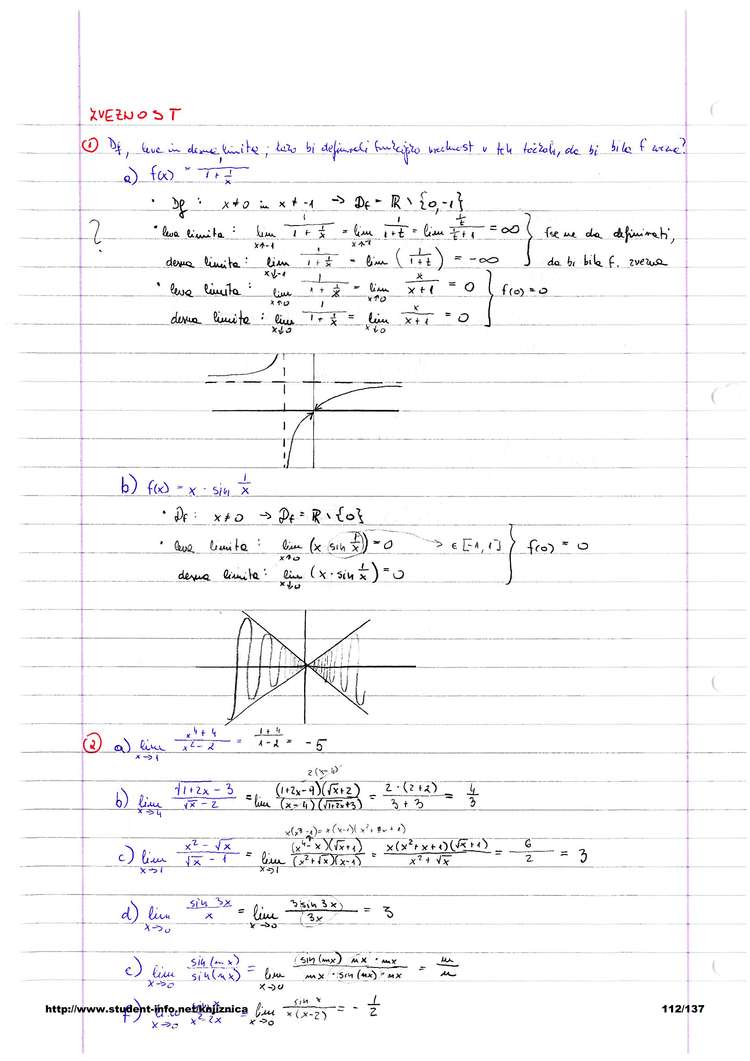 ZVEZNOST
① Df, leva in desna limita; kako bi definirali funkcijsko vrednost v teh točkah, da bi bila f zvezna?
a) f(x) = 1/(1 + 1/x)
• Df: x≠0 in x≠-1 → Df = ℝ \ {0,-1}
? • leva limita: lim x↑-1 1/(1 + 1/x) = lim x↑-1 1/(1+t) = lim = ∞ } f se ne da definirati,
desna limita: lim x↓-1 1/(1 + 1/x) = lim (1/(1+t)) = -∞ } da bi bila f. zvezna
• leva limita: lim x↑0 1/(1 + 1/x) = lim x↑0 x/(x+1) = 0 } f(0)=0
desna limita: lim x↓0 1/(1 + 1/x) = lim x↓0 x/(x+1) = 0
b) f(x) = x · sin 1/x
• Df: x≠0 → Df = ℝ \ {0}
• leva limita: lim x↑0 (x sin 1/x) = 0 → ∈ [-1,1] } f(0) = 0
desna limita: lim x↓0 (x · sin 1/x) = 0
② a) lim x→1 (x⁴+4)/(x²-2) = (1+4)/(1-2) = -5
2(x-4)
b) lim x→4 (√(1+2x) - 3)/(√x - 2) = lim (1+2x-9)(√x+2)/((x-4)(√(1+2x)+3)) = 2·(2+2)/(3+3) = 4/3
x(x³-1) = x(x-1)(x²+x+1)
c) lim x→1 (x² - √x)/(√x - 1) = lim x→1 (x⁴-x)(√x+1)/((x²+√x)(x-1)) = x(x²+x+1)(√x+1)/(x²+√x) = 6/2 = 3
d) lim x→0 sin 3x/x = lim x→0 3 sin 3x/3x = 3
e) lim x→0 sin(mx)/sin(nx) = lim x→0 sin(mx) nx · mx/(mx · sin(nx) · nx) = m/n
f) lim x→0 sin x/(x²-2x) = lim x→0 sin x/(x(x-2)) = - 1/2
http://www.student-info.net/knjiznica 112/137